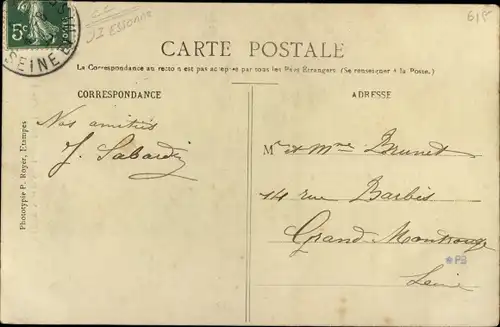 5c
SEINE
CC
91 ESSONNE
CARTE POSTALE
La Correspondance au recto n'est pas acceptée par tous les Pays Étrangers. (Se renseigner à la Poste.)
CORRESPONDANCE
ADRESSE
Nos amitiés
J. Sabardin
Mr et Mme Brunet
14 rue Barbès
Grand-Montrouge
Seine
PB
Phototypie P. Royer, Etampes